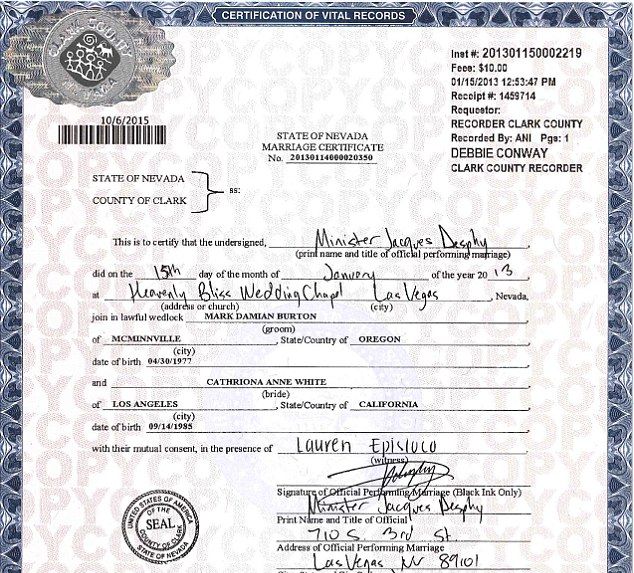 CERTIFICATION OF VITAL RECORDS
CLARK COUNTY
NEVADA
10/6/2015
Inst #: 201301150002219
Fees: $10.00
01/15/2013 12:53:47 PM
Receipt #: 1459714
Requestor:
RECORDER CLARK COUNTY
Recorded By: ANI Pgs: 1
DEBBIE CONWAY
CLARK COUNTY RECORDER
STATE OF NEVADA
MARRIAGE CERTIFICATE
No. 20130114000020350
STATE OF NEVADA
COUNTY OF CLARK
ss:
This is to certify that the undersigned, Minister Jacques Desphy
(print name and title of official performing marriage)
did on the 15th day of the month of January of the year 2013
at Heavenly Bliss Wedding Chapel Las Vegas, Nevada,
(address or church) (city)
join in lawful wedlock MARK DAMIAN BURTON
(groom)
of MCMINNVILLE, State/Country of OREGON
(city)
date of birth 04/30/1977
and CATHRIONA ANNE WHITE
(bride)
of LOS ANGELES, State/Country of CALIFORNIA
(city)
date of birth 09/14/1985
with their mutual consent, in the presence of Lauren
(witness)
Signature of Official Performing Marriage (Black Ink Only)
Minister Jacques Desphy
Print Name and Title of Official
710 S. 3rd St.
Address of Official Performing Marriage
Las Vegas NV 89101
UNITED STATES OF AMERICA
OF THE
SEAL
COUNTY OF CLARK
STATE OF NEVADA